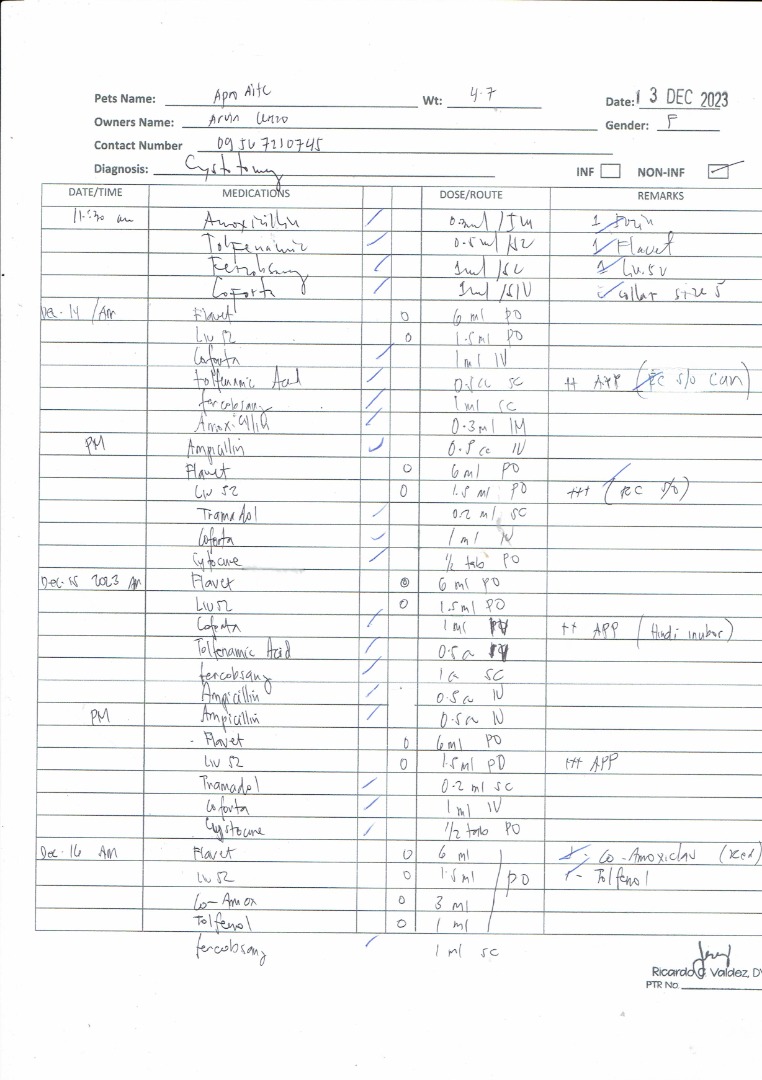 Pets Name: Wt: 4.7 Date: 13 DEC 2023
Owners Name: Arvin Gender: F
Contact Number 09567210745
Diagnosis: Cystotomy INF NON-INF
DATE/TIME MEDICATIONS DOSE/ROUTE REMARKS
11:30 am Amoxicillin 0.3ml /IM 1
Tolfenamic 0.5ml /SC 1 Flavet
Fercobsang 1ml /SC 1 Liv.52
Coforta 1ml /SIV collar size 5
Dec. 14 /Am Flavet 0 6 ml PO
Liv 52 0 1.5ml PO
Coforta 1ml IV
tolfenamic Acid 0.5cc SC ++ APP (EC s/o Can)
fercobsang 1ml SC
Amoxicillin 0.3ml IM
PM Ampicillin 0.5 cc IV
Flavet 0 6ml PO
Liv 52 0 1.5 ml PO +++ (EC s/o)
Tramadol 0.2 ml SC
Coforta 1 ml IV
Cystocure 1/2 tab PO
Dec. 15 2023 AM Flavet 0 6 ml PO
Liv 52 0 1.5ml PO
Coforta 1ml ++ APP (Hindi inubos)
Tolfenamic Acid 0.5cc
fercobsang 1cc SC
Ampicillin 0.5cc IV
PM Ampicillin 0.5cc IV
- Flavet 0 6ml PO
Liv 52 0 1.5 ml PO +++ APP
Tramadol 0.2 ml SC
Coforta 1 ml IV
Cystocure 1/2 tab PO
Dec. 16 AM Flavet 0 6 ml 1 - Co-Amoxiclav (red)
Liv 52 0 1.5ml PO 1 - Tolfenol
Co-Amox 0 3 ml
Tolfenol 0 1 ml
fercobsang 1 ml SC
Ricardo C. Valdez, DV
PTR No.